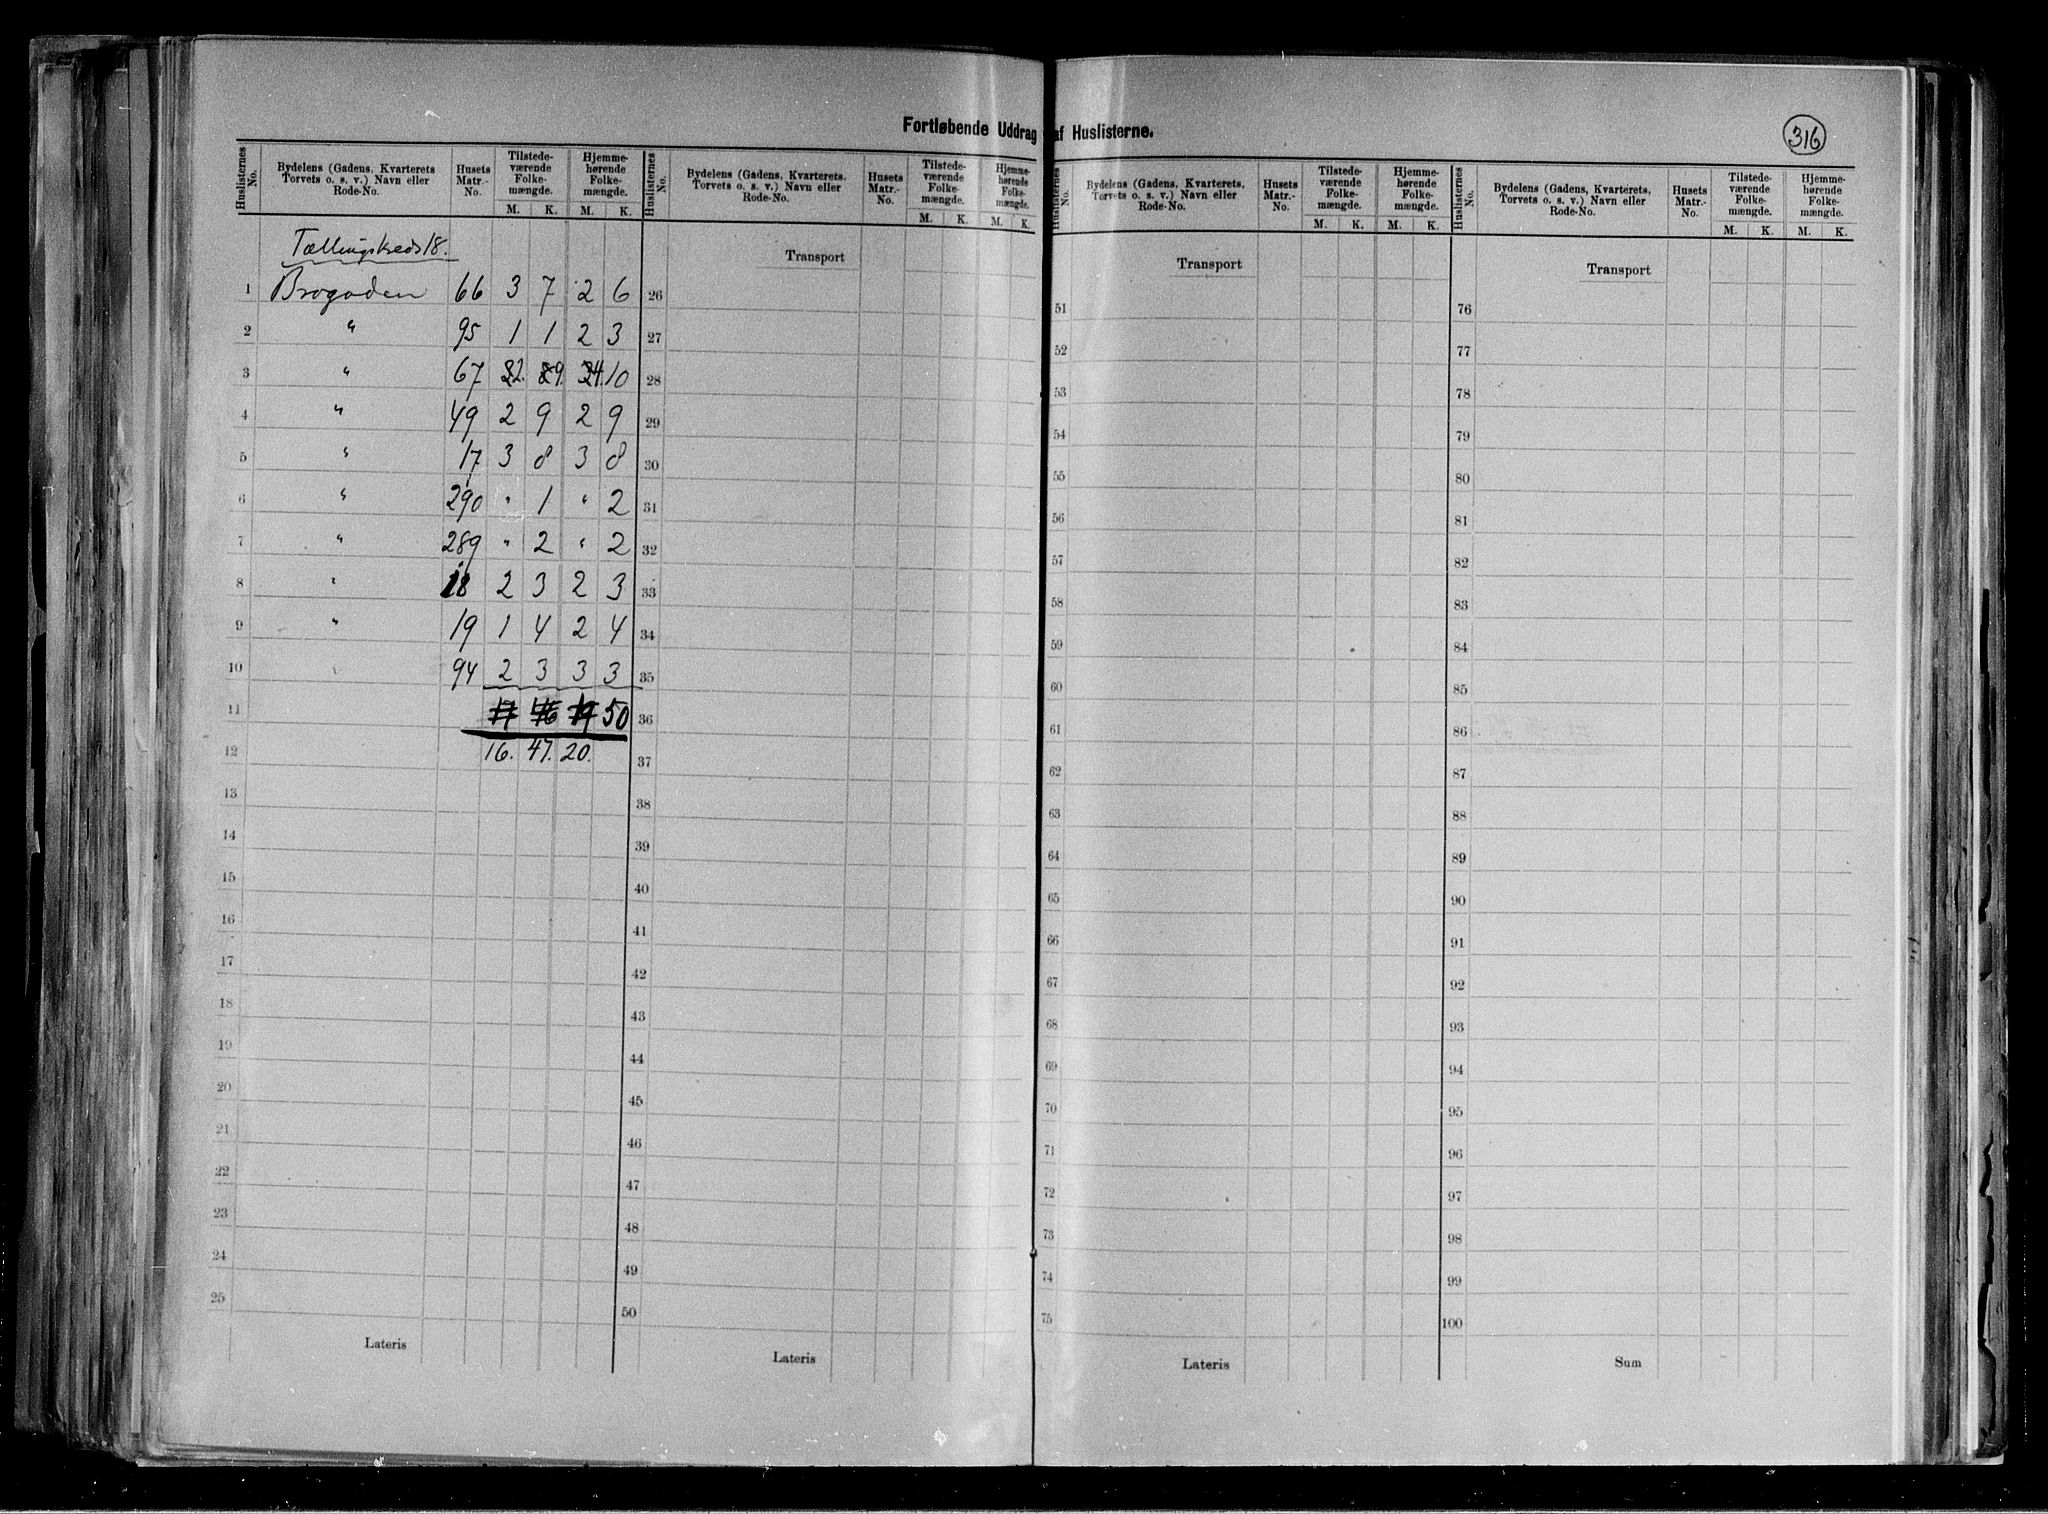 Fortløbende Uddrag af Huslisterne.
316
Huslisternes No. Bydelens (Gadens, Kvarterets Torvets o. s. v.) Navn eller Rode-No. Husets Matr.-No. Tilstedeværende Folkemængde. M. K. Hjemmehørende Folkemængde. M. K.
Tællingskreds 18.
1 Brogaden 66 3 7 2 6
2 " 95 1 1 2 3
3 " 67 2. 9. 4. 10
4 " 49 2 9 2 9
5 " 17 3 8 3 8
6 " 290 " 1 " 2
7 " 289 " 2 " 2
8 " 18 2 3 2 3
9 " 19 1 4 2 4
10 " 94 2 3 3 3
11 17 46 19 50
12 16. 47. 20.
13
14
15
16
17
18
19
20
21
22
23
24
25
Lateris
Huslisternes No. Bydelens (Gadens, Kvarterets, Torvets o. s. v.) Navn eller Rode-No. Husets Matr.-No. Tilstedeværende Folkemængde. M. K. Hjemmehørende Folkemængde. M. K.
Transport
26
27
28
29
30
31
32
33
34
35
36
37
38
39
40
41
42
43
44
45
46
47
48
49
50
Lateris
Huslisternes No. Bydelens (Gadens, Kvarterets, Torvets o. s. v.) Navn eller Rode-No. Husets Matr.-No. Tilstedeværende Folkemængde. M. K. Hjemmehørende Folkemængde. M. K.
Transport
51
52
53
54
55
56
57
58
59
60
61
62
63
64
65
66
67
68
69
70
71
72
73
74
75
Lateris
Huslisternes No. Bydelens (Gadens, Kvarterets, Torvets o. s. v.) Navn eller Rode-No. Husets Matr.-No. Tilstedeværende Folkemængde. M. K. Hjemmehørende Folkemængde. M. K.
Transport
76
77
78
79
80
81
82
83
84
85
86
87
88
89
90
91
92
93
94
95
96
97
98
99
100
Sum